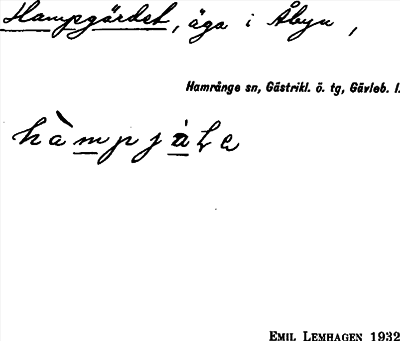 Hampgärdet, äga i Åbyn,
Hamrånge sn, Gästrikl. ö. tg, Gävleb. l.
EMIL LEMHAGEN 1932